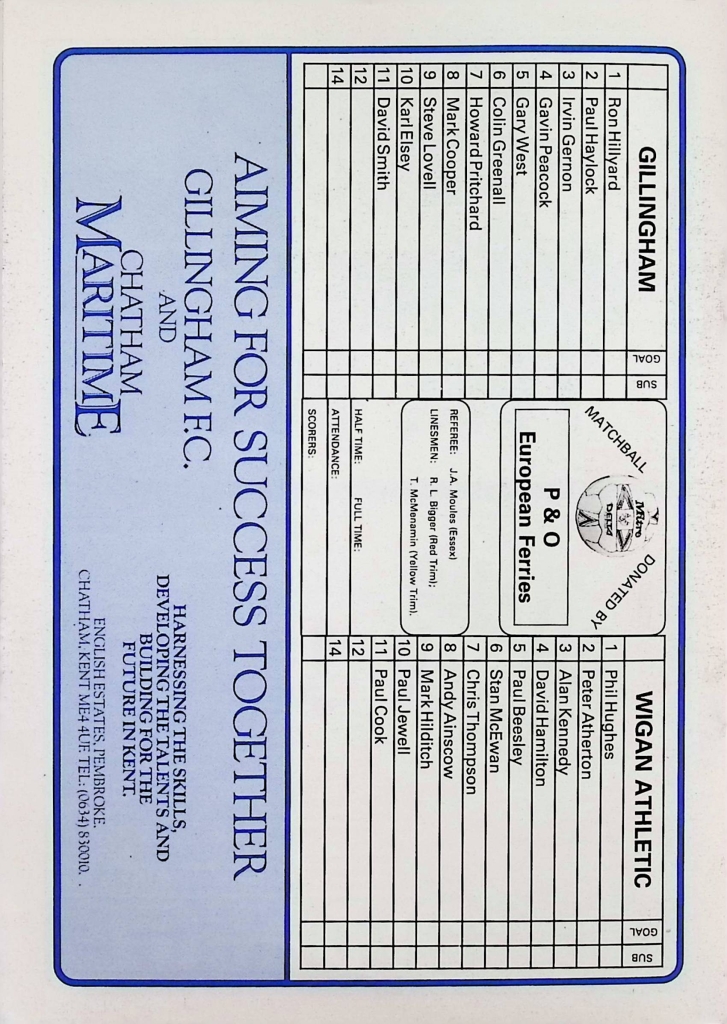 GILLINGHAM
GOAL
SUB
1 Ron Hillyard
2 Paul Haylock
3 Irvin Gernon
4 Gavin Peacock
5 Gary West
6 Colin Greenall
7 Howard Pritchard
8 Mark Cooper
9 Steve Lovell
10 Karl Elsey
11 David Smith
12
14
MATCHBALL
DONATED BY
Mitre
DELTA
P & O
European Ferries
REFEREE: J.A. Moules (Essex)
LINESMEN: R. L. Bigger (Red Trim);
T. McMenamin (Yellow Trim).
HALF TIME: FULL TIME:
ATTENDANCE:
SCORERS:
WIGAN ATHLETIC
GOAL
SUB
1 Phil Hughes
2 Peter Atherton
3 Alan Kennedy
4 David Hamilton
5 Paul Beesley
6 Stan McEwan
7 Chris Thompson
8 Andy Ainscow
9 Mark Hilditch
10 Paul Jewell
11 Paul Cook
12
14
AIMING FOR SUCCESS TOGETHER
GILLINGHAM F.C.
AND
CHATHAM
MARITIME
HARNESSING THE SKILLS,
DEVELOPING THE TALENTS AND
BUILDING FOR THE
FUTURE IN KENT.
ENGLISH ESTATES, PEMBROKE,
CHATHAM, KENT ME4 4UF TEL: (0634) 830010.